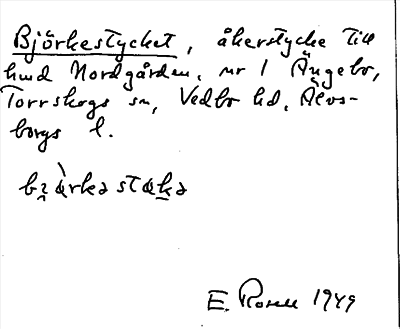 Björkestycket, åkerstycke till
hmd Nordgården, nr 1 Ängebo,
Torrskogs sn, Vedbo hd, Älvs-
borgs l.
E. Rosell 1949